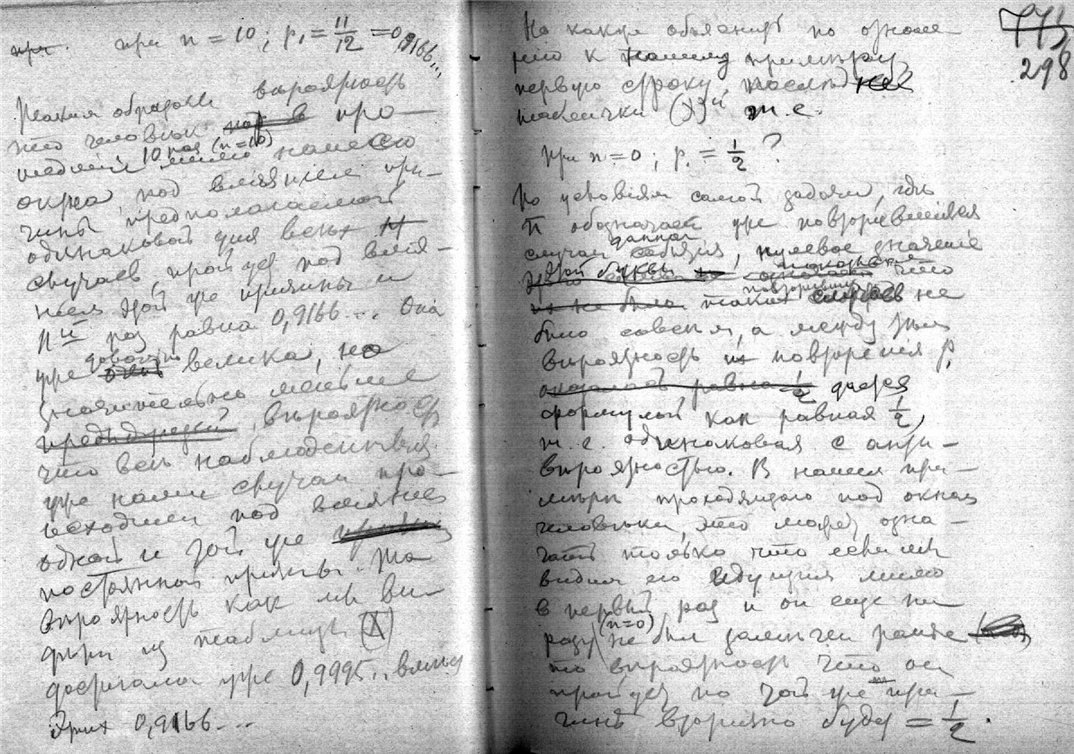 при n = 10; p₁ = 11/12 = 0,9166...
Таким образом вероятность
что человек про-
шедший 10 раз (n=10) мимо нашего
окна, под влиянием при-
чины предполагаемой
одинаковой для всех
случаев, пройдет под влия-
нием этой же причины и
11ый раз равна 0,9166... Она
уже довольно велика, но
значительно меньше
вероятности
что все наблюденныя
уже нами случаи про-
исходили под влиянием
одной и той же
постоянной причины. Та
вероятность как мы ви-
дели из таблицы (X)
достигала уже 0,9995.. вместо
этих 0,9166...
773
298
Но какже объяснить по отноше
нию к нашему примеру
первую строку,
таблички (X)ой т.е.
при n = 0; p₁ = 1/2 ?
По условиям самой задачи, где
n обозначает уже повторившийся
случаи даннаго события, нулевое значение
этой буквы что
повторившихся таких случаев не
было совсем, а между тем
вероятность повторения p₁
дается
формулой как равная 1/2,
т.е. одинаковая с анти-
вероятностью. В нашем при-
мере проходящаго под окном
человека, это может озна-
чать только что если мы
видим его идущим мимо
в первый раз и он еще ни
разу (n=0) не был замечен ранее
то вероятность что он
пройдет по той же при-
чине вторично будет = 1/2.